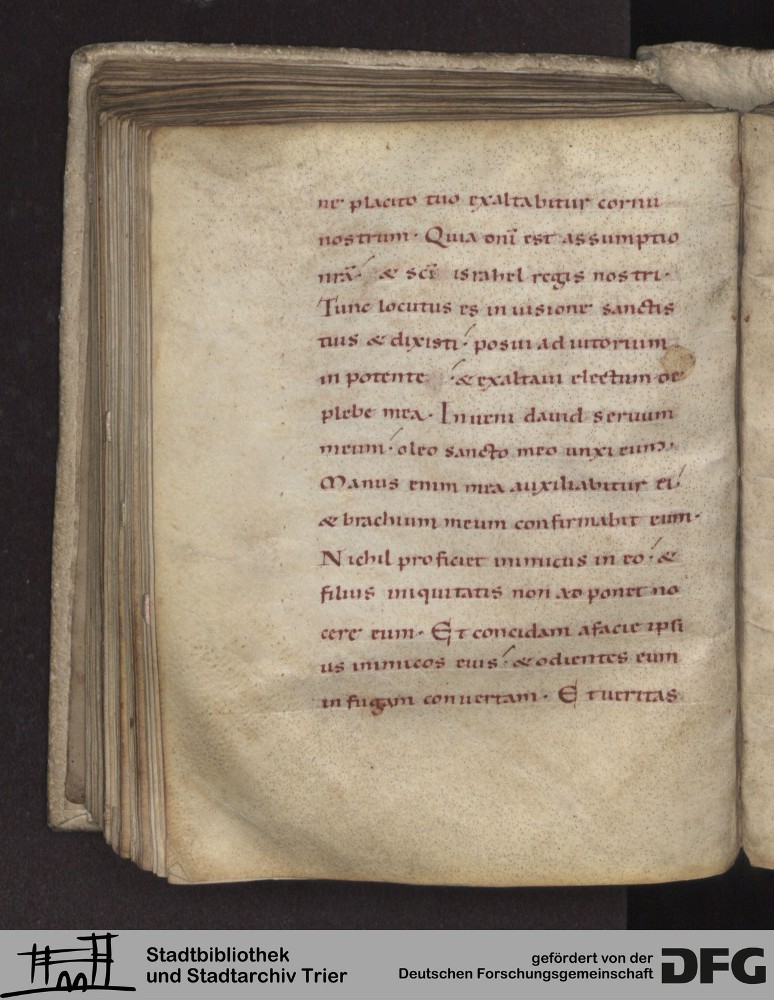 ne placito tuo exaltabitur cornu
nostrum · Quia dnī est assumptio
nrā · & scī israhel regis nostri ·
Tunc locutus es in uisione sanctis
tuis & dixisti · posui adiutorium
in potente · & exaltaui electum de
plebe mea · Inueni dauid seruum
meum · oleo sancto meo unxi eum ·
Manus enim mea auxiliabitur ei ·
& brachium meum confirmabit eum ·
Nichil proficiet inimicus in eo · &
filius iniquitatis non adponet no
cere eum · Et concidam afacie ipsi
us inimicos eius · & odientes eum
in fugam conuertam · Et ueritas
Stadtbibliothek
und Stadtarchiv Trier
gefördert von der
Deutschen Forschungsgemeinschaft
DFG